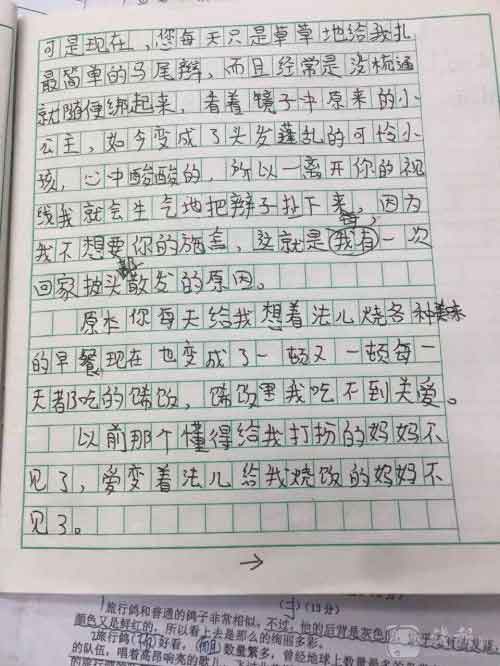 可是现在,您每天只是草草地给我扎
最简单的马尾辫,而且经常是没梳通
就随便绑起来,看着镜子中原来的小
公主,如今变成了头发蓬乱的可怜小
孩,心中酸酸的,所以一离开你的视
线我就会生气地把辫子扯下来,因为
我不想要你的施舍,这就是我每有一次
回家披头散发的原因。
原本你每天给我想着法儿烧各种美味
的早餐现在也变成了一顿又一顿每一
天都吃的馊饭,馊饭里我吃不到关爱。
以前那个懂得给我打扮的妈妈不
见了,爱变着法儿给我烧饭的妈妈不
见了。
→
(二)(13分)
旅行鸽和普通的鸽子非常相似。不过,他的后背是灰色
颜色又是鲜红的。所以看上去是那么的绚丽多彩。
旅行鸽
好看,
数量繁多,曾经给球上数量
的队伍,唱着高昂响亮的歌儿,